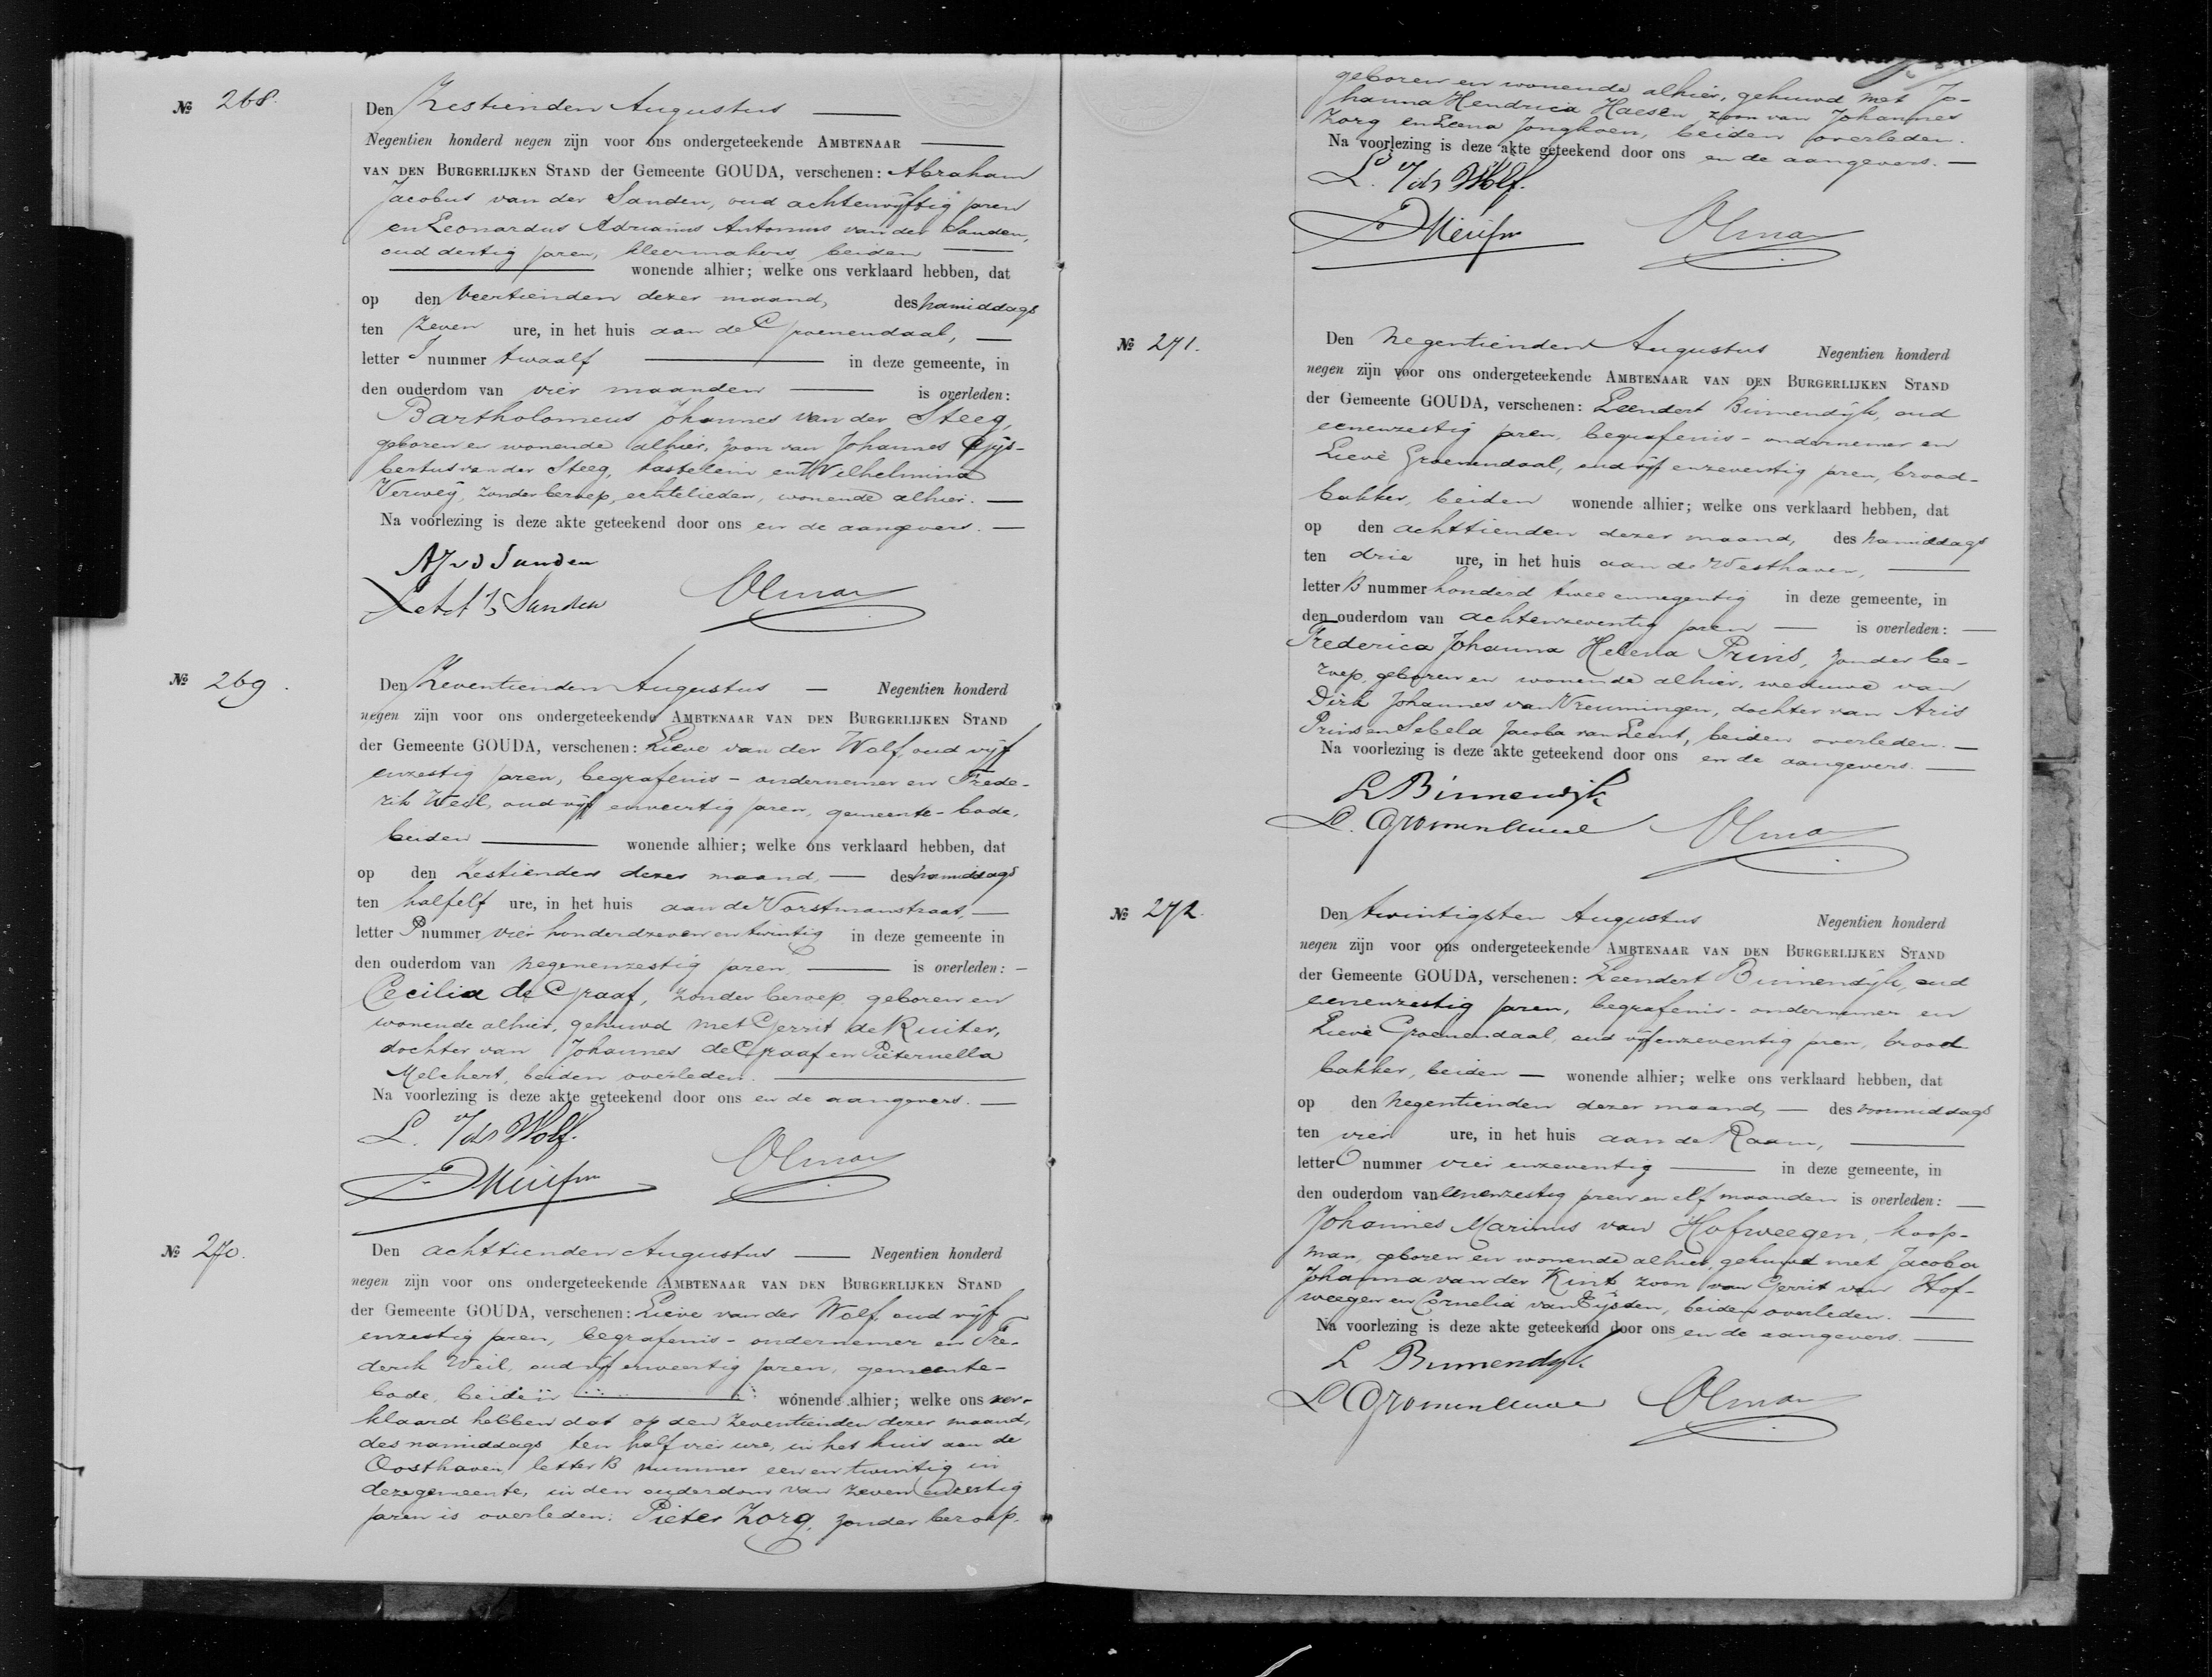 № 268.
Den Zestienden Augustus
Negentien honderd negen zijn voor ons ondergeteekende AMBTENAAR
VAN DEN BURGERLIJKEN STAND der Gemeente GOUDA, verschenen: Abraham
Jacobus van der Sanden, oud achtenvijftig jaren
en Leonardus Adrianus Antonius van der Sanden,
oud dertig jaren, kleermakers, beiden
wonende alhier; welke ons verklaard hebben, dat
op den Veertienden dezer maand, des namiddags
ten Zeven ure, in het huis aan de Groenendaal,
letter I nummer twaalf in deze gemeente, in
den ouderdom van vier maanden is overleden:
Bartholomeus Johannes van der Steeg,
geboren en wonende alhier, zoon van Johannes Gijs-
bertus van der Steeg, kastelein en Wilhelmina
Verweij, zonder beroep, echtelieden, wonende alhier.
Na voorlezing is deze akte geteekend door ons en de aangevers.
AJ vd Sanden
№ 269.
Den Zeventienden Augustus — Negentien honderd
negen zijn voor ons ondergeteekende AMBTENAAR VAN DEN BURGERLIJKEN STAND
der Gemeente GOUDA, verschenen: Lieve van der Wolf, oud vijf
enzestig jaren, begrafenis-ondernemer en Frede-
rik Weil, oud vijf enveertig jaren, gemeente-bode,
beiden wonende alhier; welke ons verklaard hebben, dat
op den Zestienden dezer maand, — des namiddags
ten halfelf ure, in het huis aan de Vorstmanstraat,
letter P nummer vier honderd zeven en twintig in deze gemeente in
den ouderdom van negenenzestig jaren, is overleden:
Cecilia de Graaf, zonder beroep, geboren en
wonende alhier, gehuwd met Gerrit de Ruiter,
dochter van Johannes de Graaf en Pieternella
Melchert, beiden overleden.
Na voorlezing is deze akte geteekend door ons en de aangevers.
L. v/dr Wolf.
№ 270.
Den achttienden Augustus — Negentien honderd
negen zijn voor ons ondergeteekende AMBTENAAR VAN DEN BURGERLIJKEN STAND
der Gemeente GOUDA, verschenen: Lieve van der Wolf, oud vijf
enzestig jaren, begrafenis-ondernemer en Fre-
derik Weil, oud vijf enveertig jaren, gemeente-
bode, beiden wonende alhier; welke ons ver-
klaard hebben dat op den zeventienden dezer maand,
des namiddags ten half vier ure, in het huis aan de
Oosthaven, letter B nummer een en twintig in
deze gemeente, in den ouderdom van zeven enzestig
jaren is overleden: Pieter Zorg, zonder beroep,
geboren en wonende alhier, gehuwd met Jo-
hanna Hendrica Haesen, zoon van Johannes
Zorg en Leena Jongkoen, beiden overleden.
Na voorlezing is deze akte geteekend door ons en de aangevers.
L. v/dr Wolf.
№ 271.
Den negentienden Augustus Negentien honderd
negen zijn voor ons ondergeteekende AMBTENAAR VAN DEN BURGERLIJKEN STAND
der Gemeente GOUDA, verschenen: Leendert Binnendijk, oud
eenenzestig jaren, begrafenis-ondernemer en
Lievé Groenendaal, oud vijf enzeventig jaren, brood-
bakker, beiden wonende alhier; welke ons verklaard hebben, dat
op den achttienden dezer maand, des namiddags
ten drie ure, in het huis aan de Westhaven,
letter B nummer honderd twee ennegentig in deze gemeente, in
den ouderdom van achtenzeventig jaren — is overleden:
Frederica Johanna Helena Prins, zonder be-
roep, geboren en wonende alhier, weduwe van
Dirk Johannes van Vreumingen, dochter van Aris
Prins en Sebela Jacoba van Leent, beiden overleden.
Na voorlezing is deze akte geteekend door ons en de aangevers.
L Binnendijk
L. Groenendaal
№ 272.
Den twintigsten Augustus Negentien honderd
negen zijn voor ons ondergeteekende AMBTENAAR VAN DEN BURGERLIJKEN STAND
der Gemeente GOUDA, verschenen: Leendert Binnendijk, oud
eenenzestig jaren, begrafenis-ondernemer en
Lievé Groenendaal, oud vijfenzeventig jaren, brood
bakker, beiden — wonende alhier; welke ons verklaard hebben, dat
op den negentienden dezer maand, — des voormiddags
ten vier ure, in het huis aan de Raam,
letter O nummer vier enzeventig in deze gemeente, in
den ouderdom van eenenzestig jaren en elf maanden is overleden:
Johannes Marinus van Hofweegen, koop-
man, geboren en wonende alhier, gehuwd met Jacoba
Johanna van der Kint zoon van Gerrit van Hof-
weegen en Cornelia van Eijsden, beiden overleden.
Na voorlezing is deze akte geteekend door ons en de aangevers.
L Binnendijk
L Groenendaal